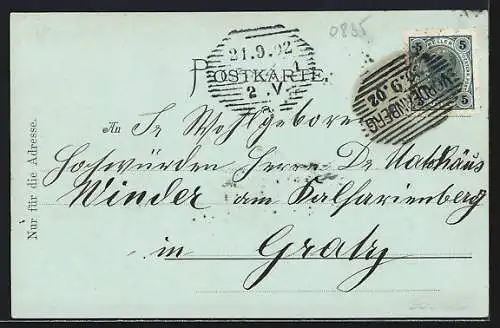 0835
21.9.02
2. V
a
POSTKARTE.
5 HELLER 5
5 5
RUFENBERG
9.02
An Sr. Wohlgeboren
Hochwürden Herrn Dr Matthäus
Winder am Kalvarienberg
in Gratz
Nur für die Adresse.